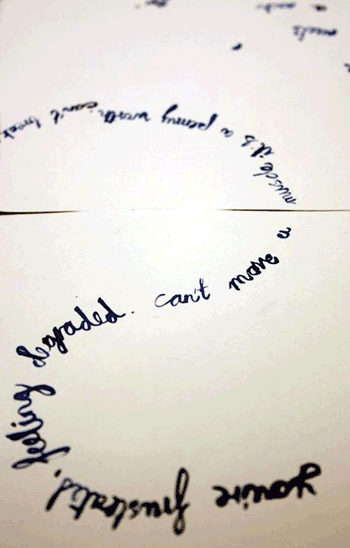 you're frustrated, feeling degraded. can't move a muscle it's a penny worth can't treat